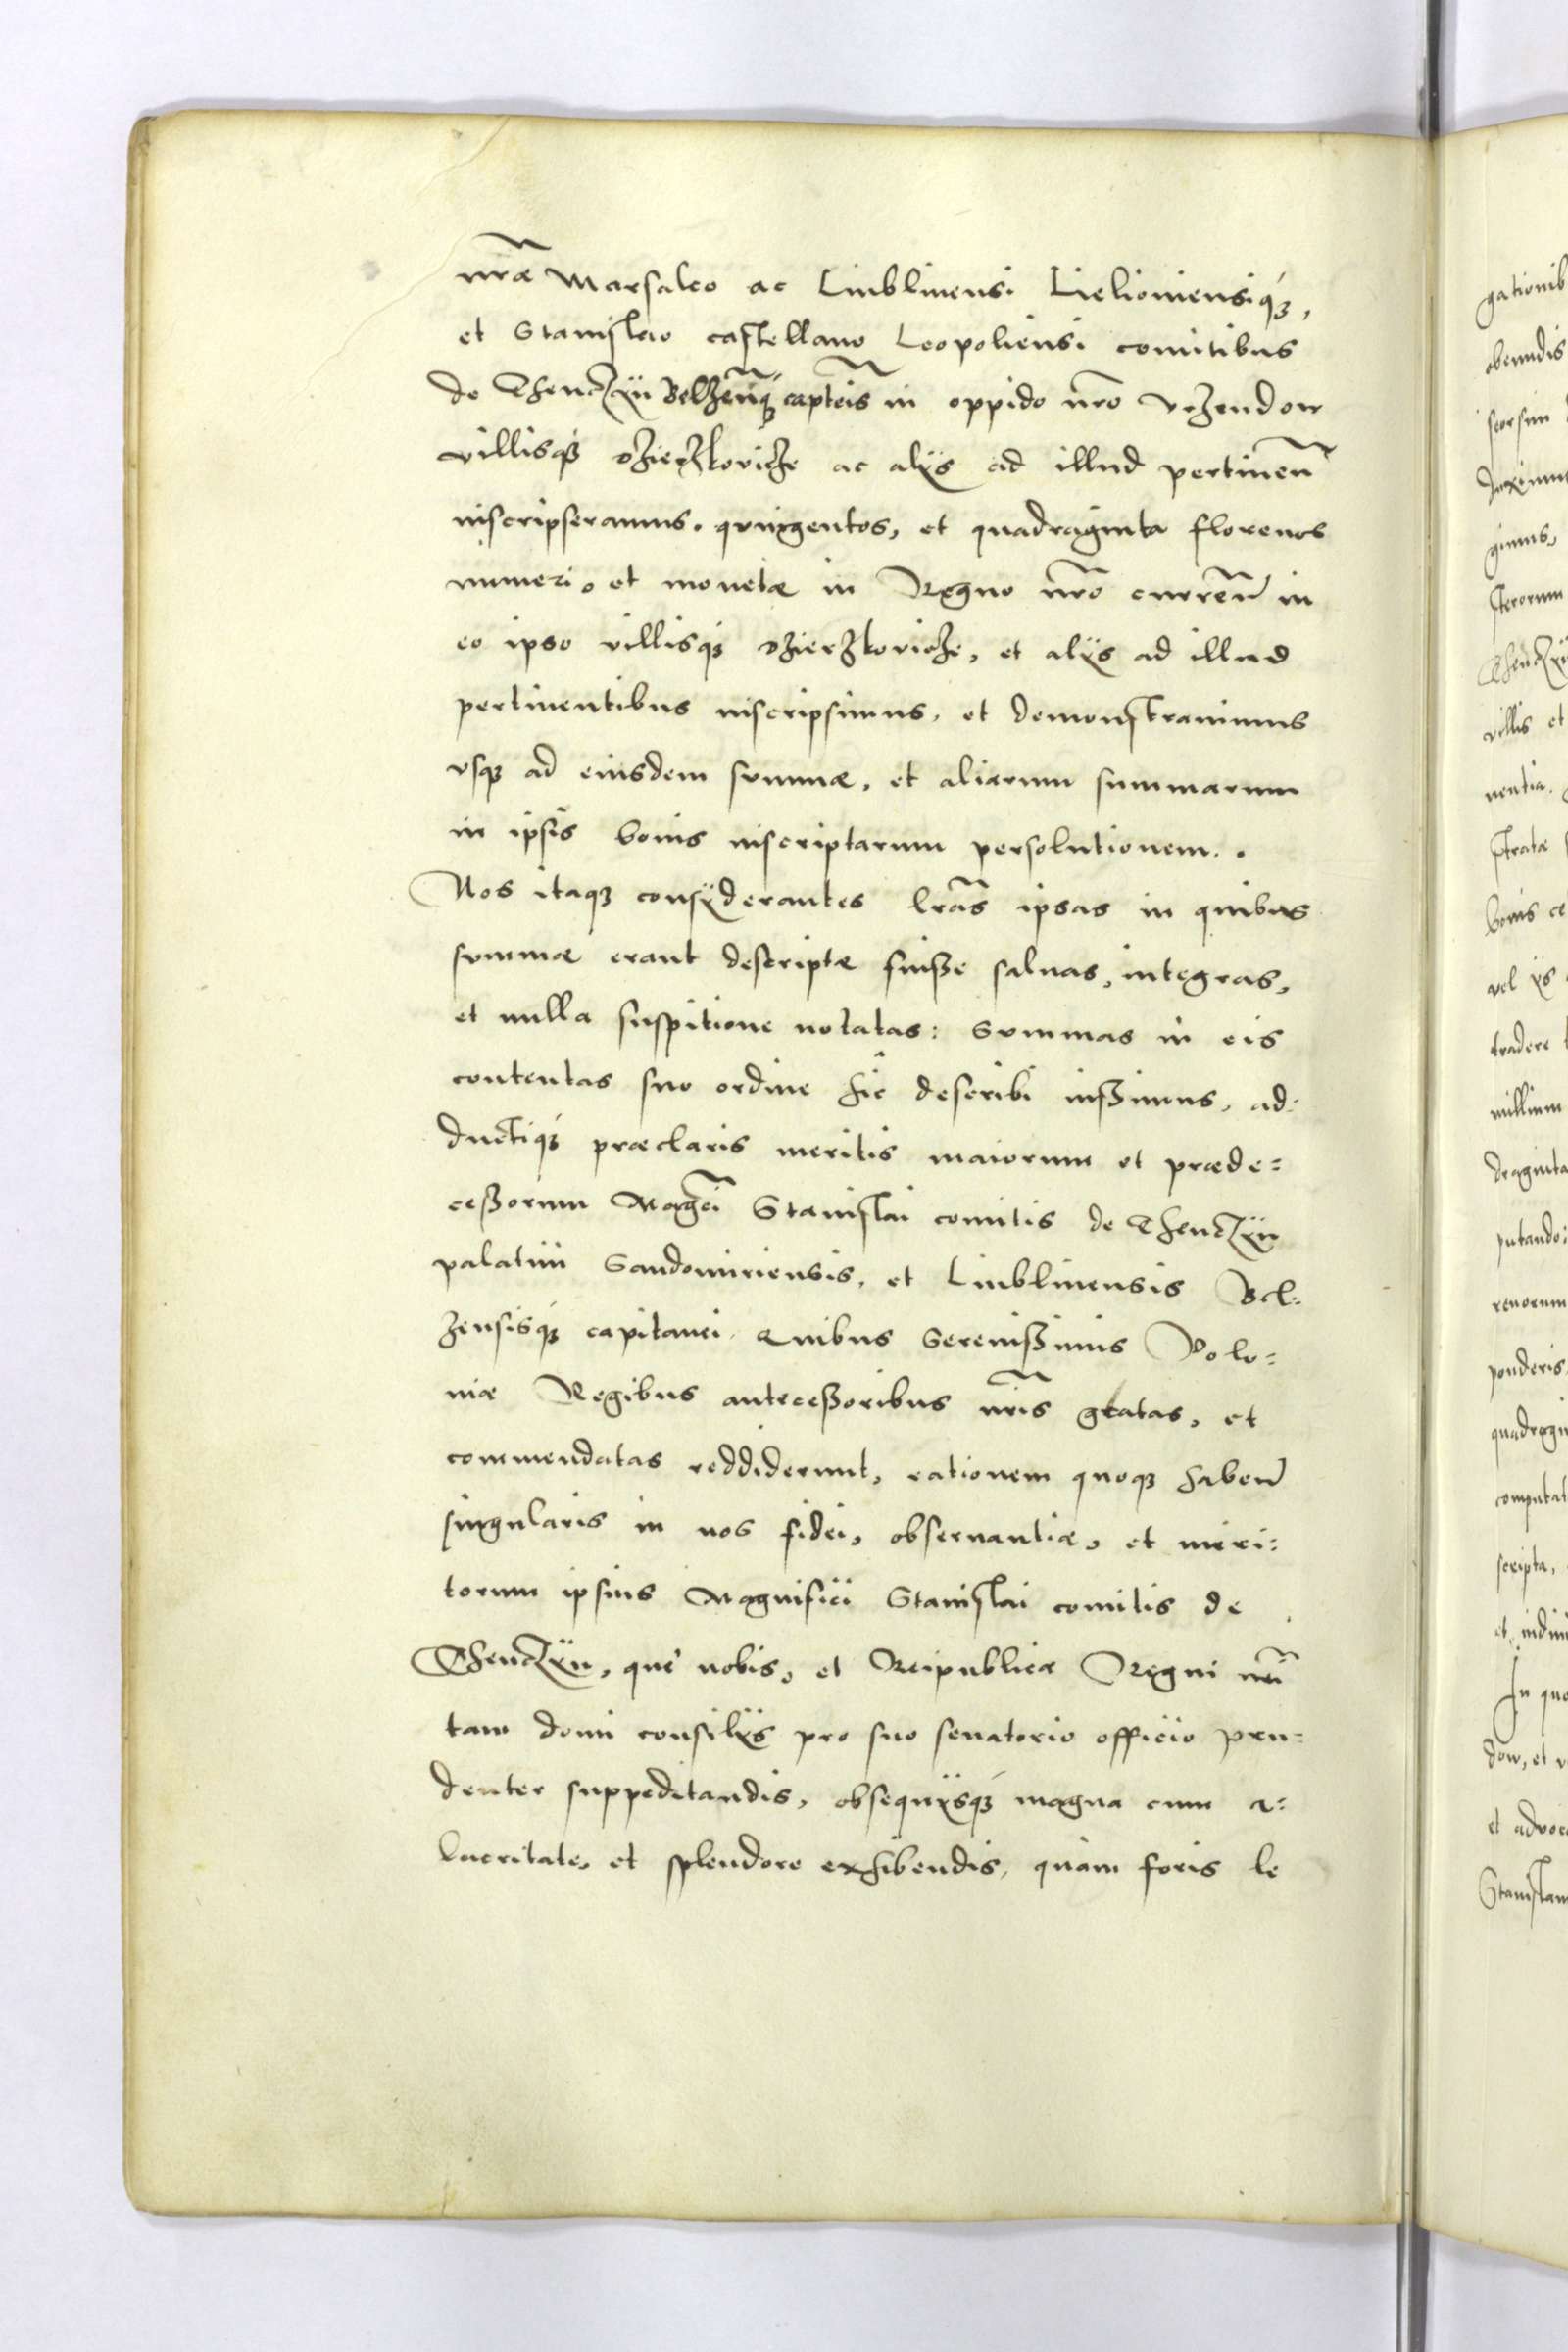 nr̃æ Marsalco ac Liublinensi Lielioniensiq3,
et Stanislao castellano Leopoliensi comitibus
de Thenczÿn Belzeñq3 capteis̃ in oppido nr̃o Vrzendow
villisq3 Dzierzkovicze ac alÿs ad illud pertineñ
inscripseramus. quingentos, et quadraginta florenos
numeri, et monetæ in Regno nr̃o curreñ in
eo ipso villisq3 Dzierzkovicze, et alÿs ad illud
pertinentibus inscripsimus, et demonstravimus
vsq3 ad eiusdem summæ, et aliarum summarum
in ipsis bonis inscriptarum persolutionem..
Nos itaq3 consÿderantes lr̃as ipsas in quibus
summæ erant descriptæ fuisse saluas, integras,
et nulla suspitione notatas: Summas in eis
contentas suo ordine hic describi iussimus, ad:
ductiq3 præclaris meritis maiorum et præde:
cessorum Magc̃i Stanislai comitis de Thenczÿn
palatini Sandomiriensis, et Liublinensis Bel:
zensisq3 capitanei, Quibus Serenissimis Polo:
niæ Regibus antecessoribus nr̃is gratas, et
commendatas reddiderunt, rationem quoq3 habeñ
singularis in nos fidei, obseruantiæ, et meri:
torum ipsius Magnifici Stanislai comitis de
Thenczÿn, quę nobis, et Reipublicæ Regni nr̃i
tam domi consilÿs pro suo senatorio officio pru:
denter suppeditandis, obsequÿsq3 magna cum a:
lacritate, et splendore exhibendis, quàm foris le
gationib
obeundis
seorsim
duximus
gimus,
sterorum
Thenczÿ
villis et
nentia.
stratæ
bonis ce
vel ÿs
tradere
millium
draginta
putando:
renorum
ponderis
quadragin
computat
scripta,
et indiui
In quo
dow, et v
et advoc
Stanislau